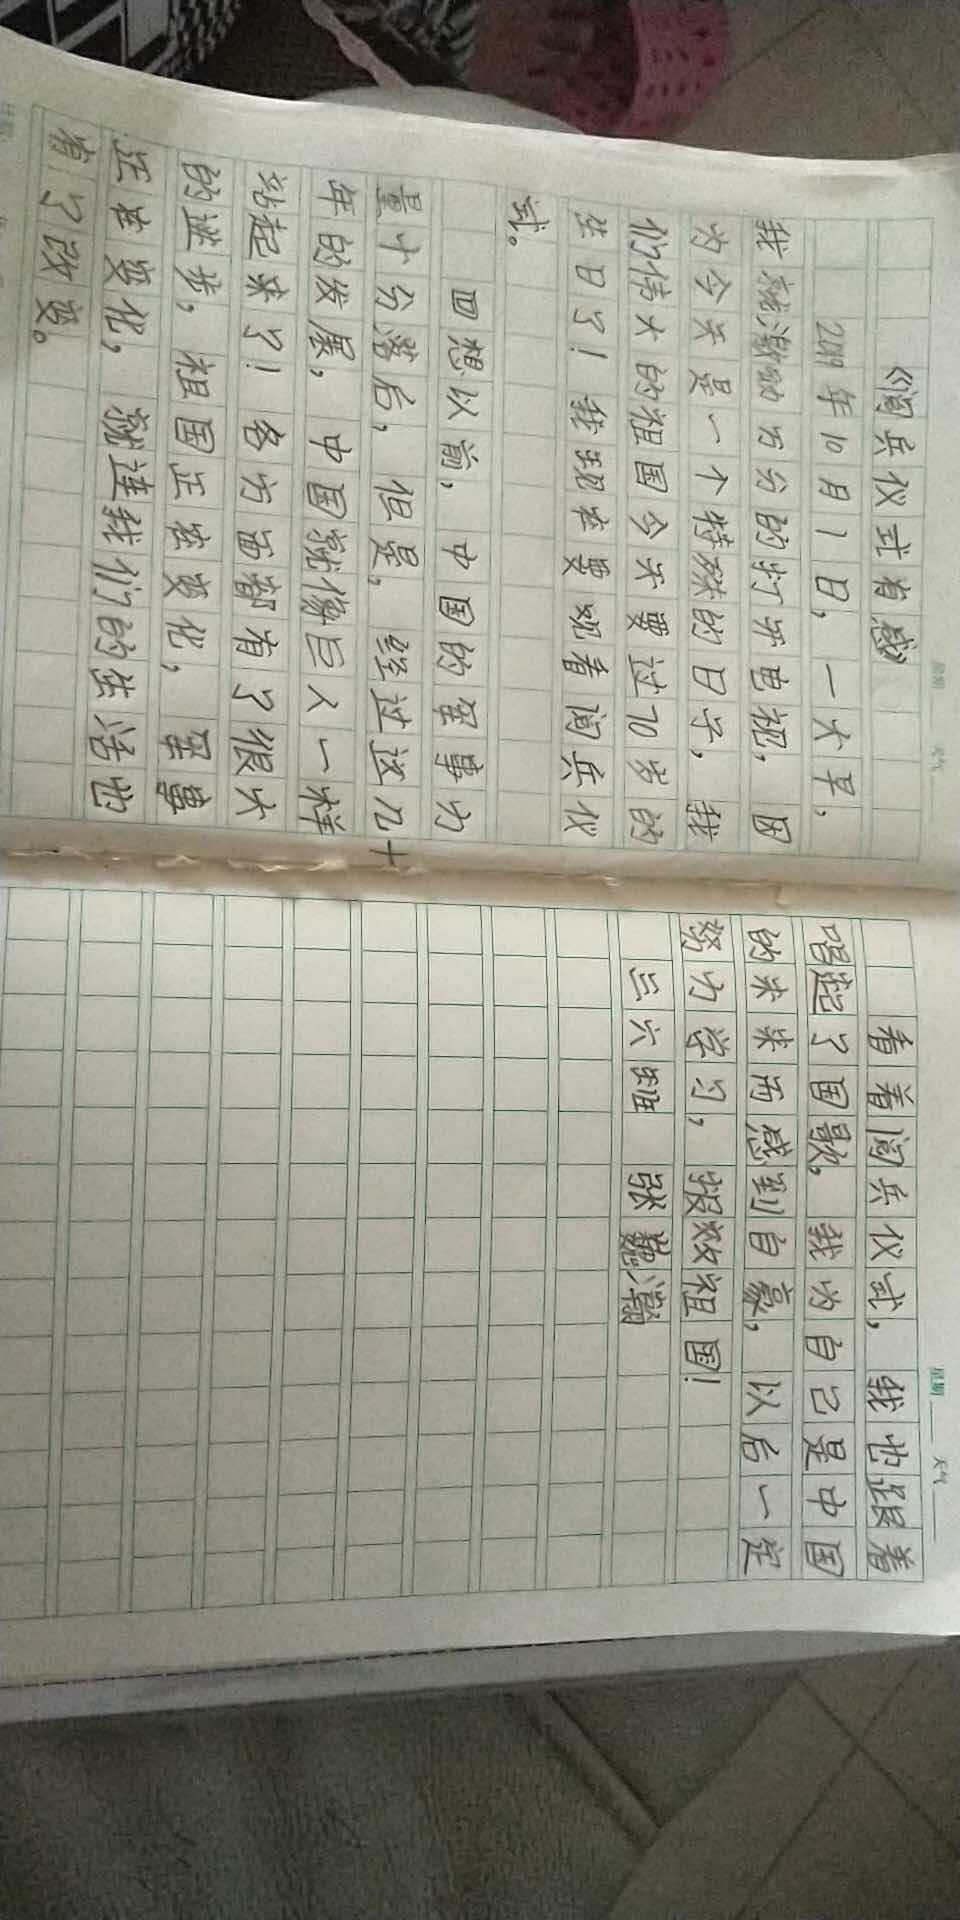 星期 天气
《阅兵仪式有感》
2019年10月1日,一大早,
我就激动万分的打开电视,因
为今天是一个特殊的日子,我
们伟大的祖国今天要过70岁的
生日了!我现在要观看阅兵仪
式。
回想以前,中国的军事力
量十分落后,但是,经过这几十
年的发展,中国就像巨人一样
站起来了!各方面都有了很大
的进步,祖国正在变化,军事
正在变化,就连我们的生活也
有了改变。
星期 天气
看着阅兵仪式,我也跟着
唱起了国歌,我为自己是中国
的未来而感到自豪,以后一定
努力学习,报效祖国!
三六班 张